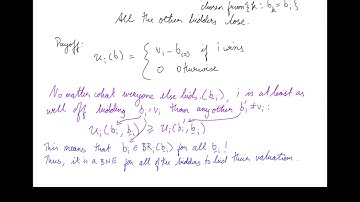 chosen from {k : b_k = b_i}
All the other bidders lose.
Payoff:
u_i(b) = { v_i - b_(2) if i wins
0 otherwise
No matter what everyone else bids (b_-i), i is at least as
well off bidding b_i = v_i than any other b_i' ≠ v_i:
u_i(b_i, b_-i) ≥ u_i(b_i', b_-i)
This means that b_i ∈ BR_i(b_-i) for all b_-i!
Thus, it is a BNE for all of the bidders to bid their valuation.